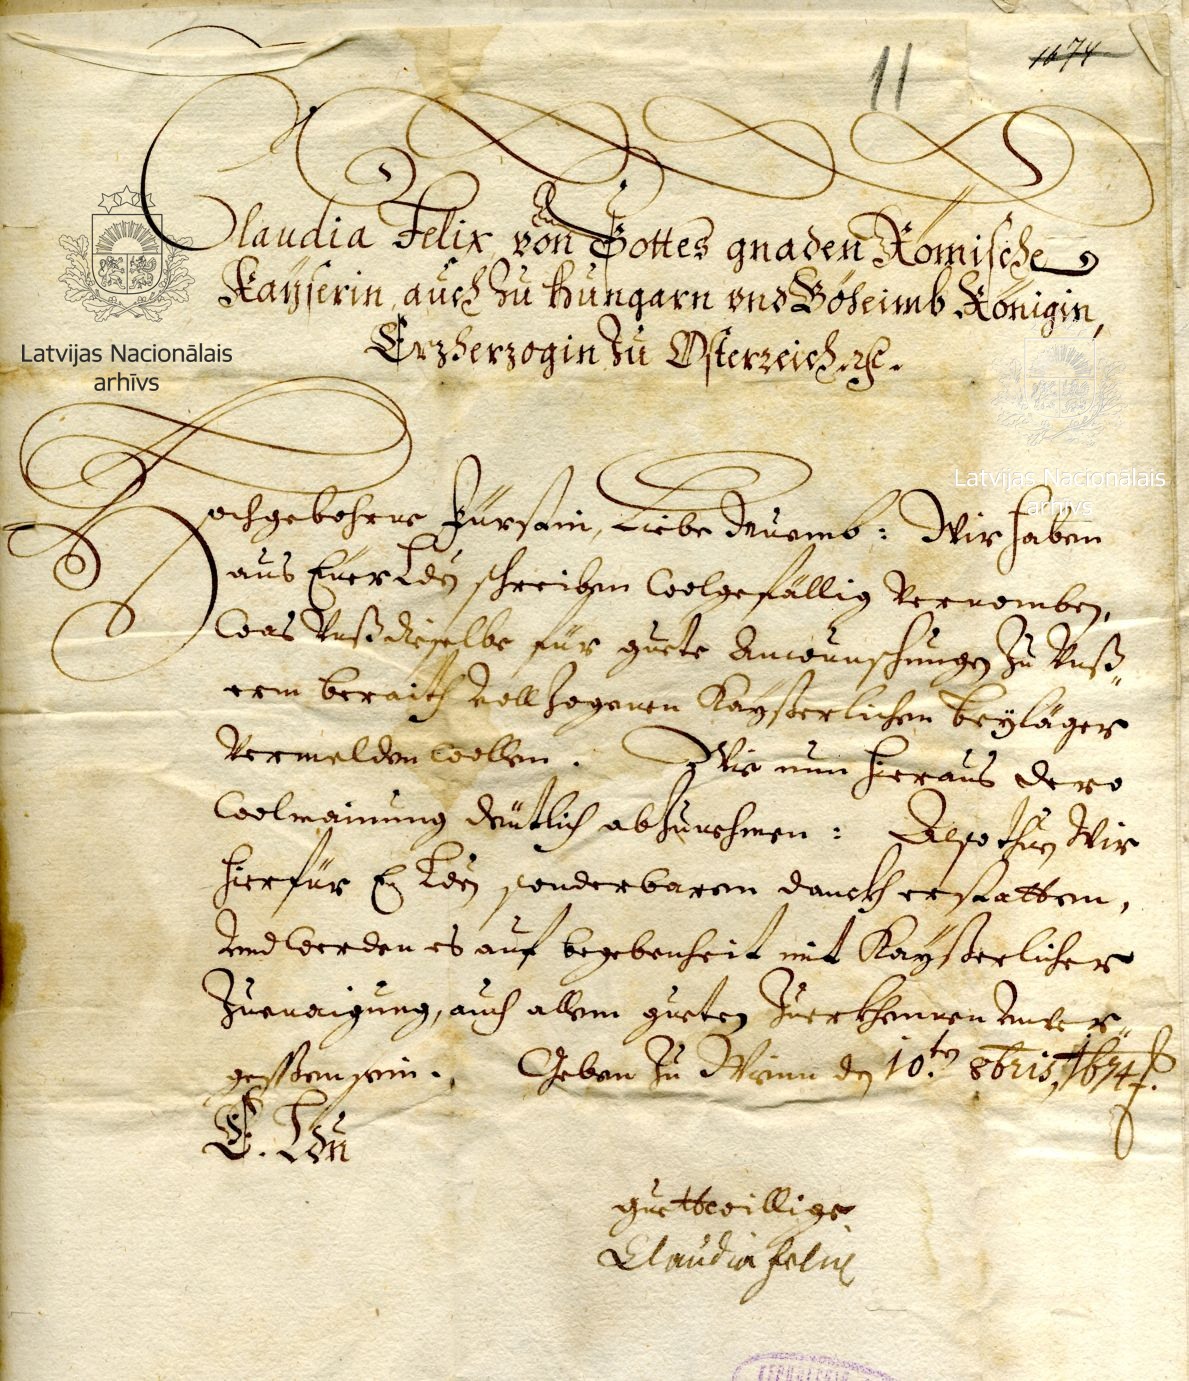 11
1674
Claudia Felix von Gottes gnaden Römische
Kayserin auch zu Hungarn vnd Böheimb Königin,
Erzherzogin zu Osterreich. etc.
Latvijas Nacionālais
arhīvs
Latvijas Nacionālais
arhīvs
Hochgebohrne Fürstin, Liebe Muemb: Wir haben
aus Euer Lden schreiben wolgefällig vernomben,
was Unß dieselbe für guete Anwünschungen zu Unß„
erm beraith vollzogenen Kayßerlichen beyläger
vermelden wollen. Wie nun hieraus dero
wolmainung deütlich abzunehmen: Also thuen Wir
hierfür E Lden sonderbaren danckh erstatten,
und werden es auf begebenheit mit Kayßerlicher
Zuenaigung, auch allem gueten Zuerkhennen unver„
gessen sein. Geben zu Wienn den 10.ten 8bris, 1674.
E. Lden
guettwillige
Claudia Felix